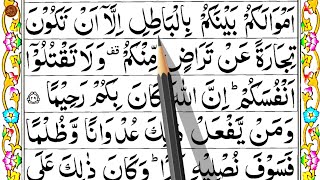 اَمْوَالَكُمْ بَيْنَكُمْ بِالْبَاطِلِ اِلَّاۤ اَنْ تَكُوْنَ
تِجَارَةً عَنْ تَرَاضٍ مِّنْكُمْ ۫ وَلَا تَقْتُلُوْۤا
اَنْفُسَكُمْ ؕ اِنَّ اللّٰهَ كَانَ بِكُمْ رَحِيْمًا ﴿۲۹﴾
وَمَنْ يَّفْعَلْ ذٰلِكَ عُدْوَانًا وَّظُلْمًا
فَسَوْفَ نُصْلِيْهِ ؕ وَكَانَ ذٰلِكَ عَلَى